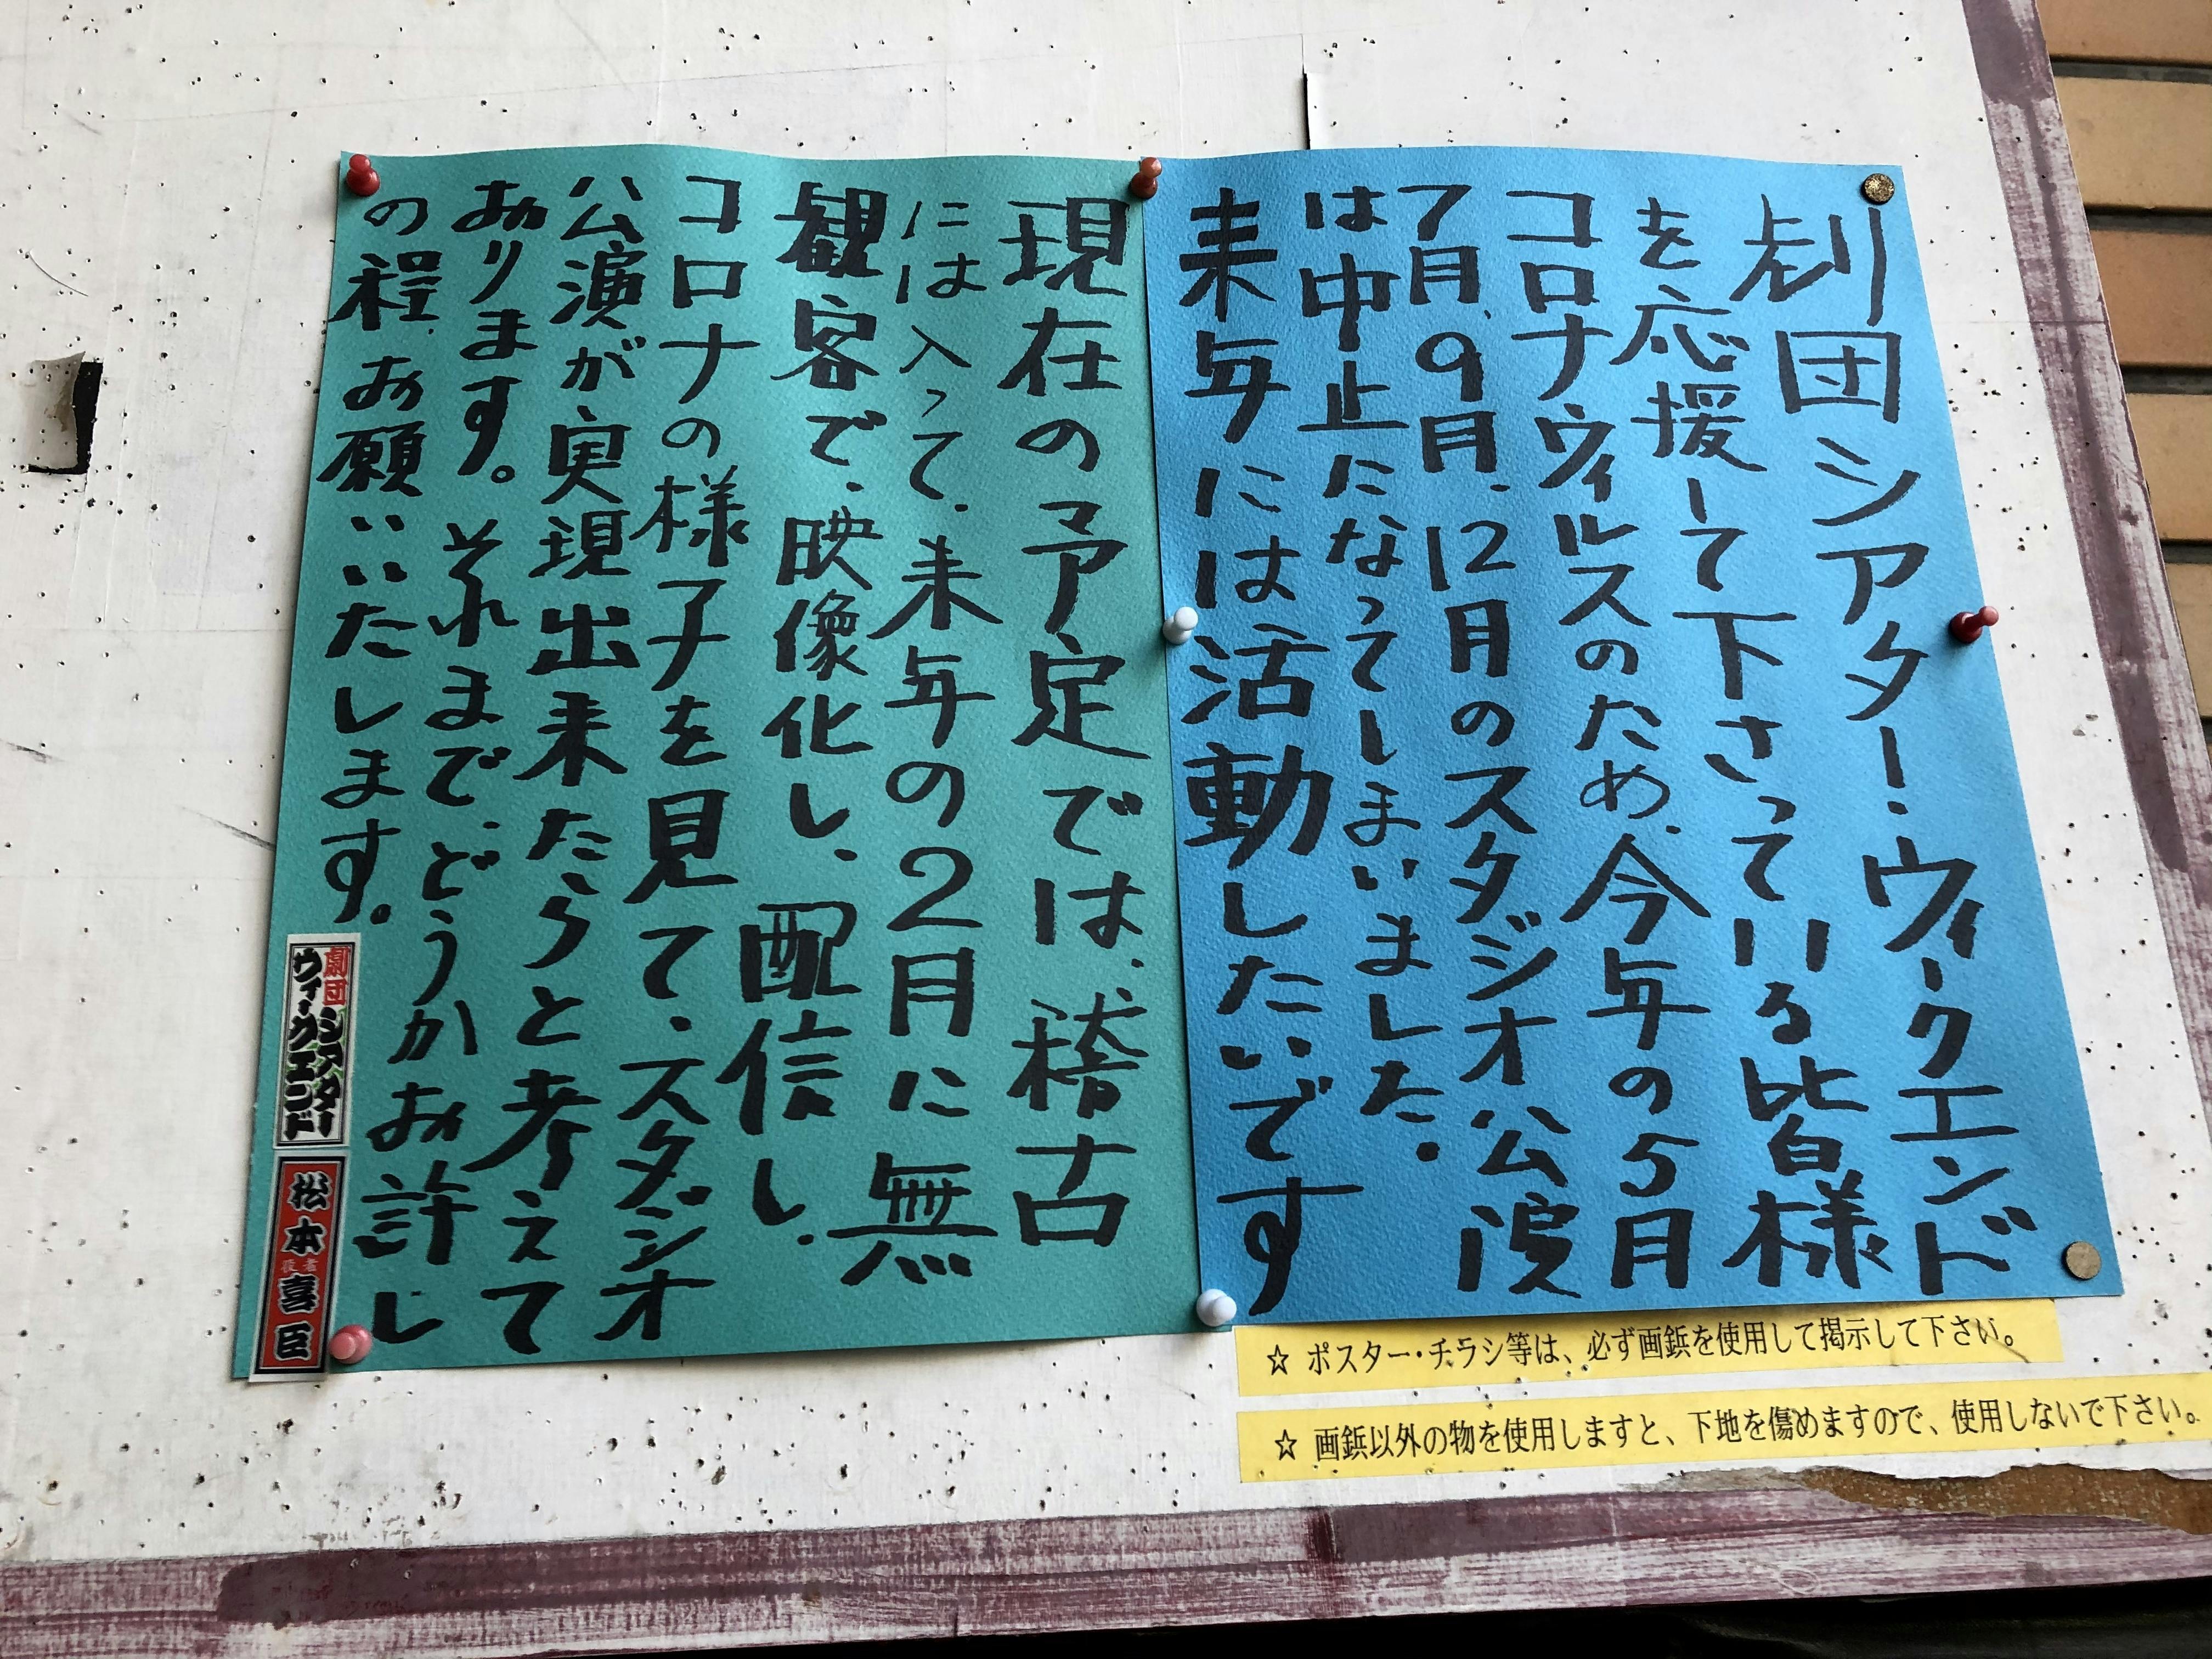 劇団シアター・ウィークエンド
を応援して下さっている皆様
コロナウィルスのため、今年の5月
7月、9月、12月のスタジオ公演
は中止になってしまいました。
来年には活動したいです
現在の予定では、稽古
には入って、来年の2月に無
観客で、映像化し、配信し、
コロナの様子を見て、スタジオ
公演が実現出来たらと考えて
おります。それまで、どうかお許し
の程、お願いいたします。
劇団シアター
ウィークエンド
松本喜臣
役者
☆ ポスター・チラシ等は、必ず画鋲を使用して掲示して下さい。
☆ 画鋲以外の物を使用しますと、下地を傷めますので、使用しないで下さい。